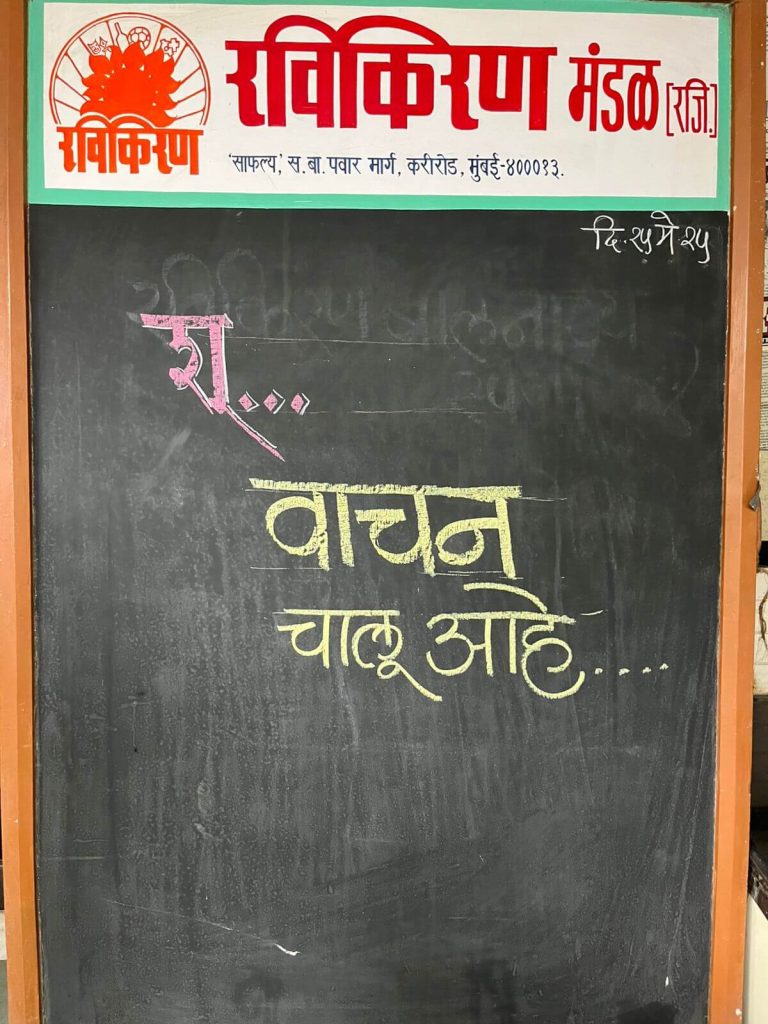 रविकिरण
रविकिरण मंडळ [रजि.]
'साफल्य,' स.बा.पवार मार्ग, करीरोड, मुंबई-४०००१३.
दि. २५ मे. २५
श्...
वाचन
चालू आहे....